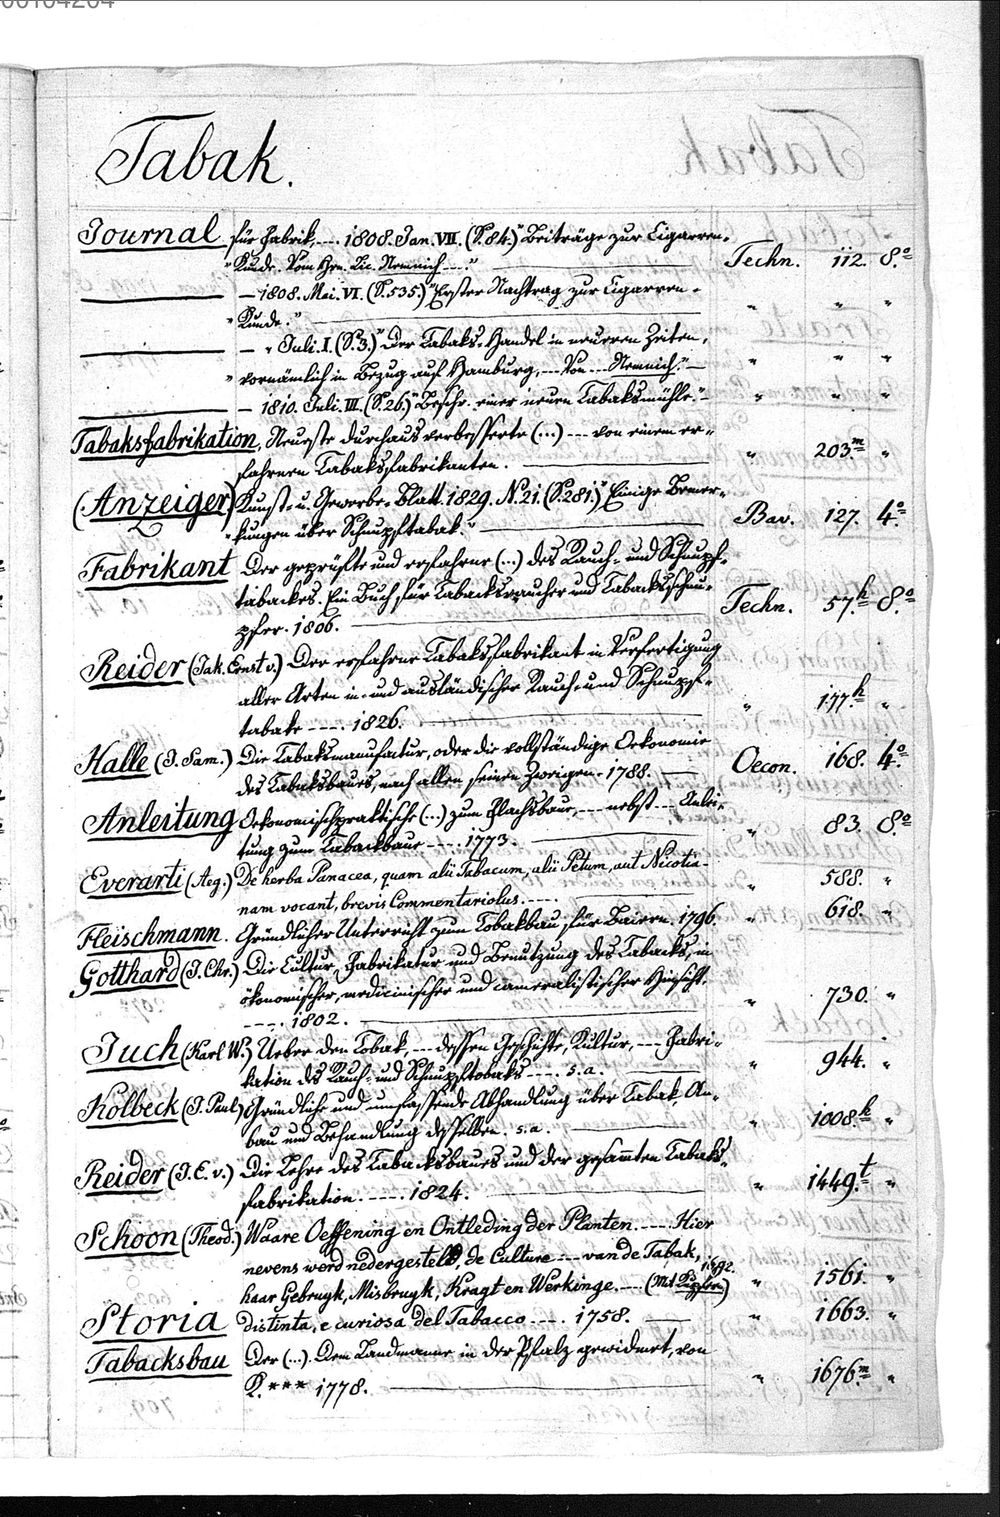 Tabak.
Journal für Fabrik, --- 1808. Jan. VII. (S. 84.) "Beiträge zur Cigarren-
"Kunde. Vom Hrn. Lic. Nemnich ---." Techn. 112. 8.º
— 1808. Mai. VI. (S. 535.) "Erster Nachtrag zur Cigarren-
"Kunde." " " "
— " Juli. I. (S. 3.) "Der Tabaks-Handel in neueren Zeiten,
"vornämlich in Bezug auf Hamburg, --- Von --- Nemnich." — " " "
— 1810. Juli. III. (S. 26.) "Beschr. einer neuen Tabaksmühle." — " " "
Tabaksfabrikation, Neueste durchaus verbesserte (...) --- von einem er-
fahrnen Tabaksfabrikanten. " 203.m "
(Anzeiger) Kunst- u. Gewerbe-Blatt. 1829. N. 21. (S. 281.) "Einige Bemer-
"kungen über Schnupftabak." Bav. 127. 4.º
Fabrikant Der geprüfte und erfahrne (...) des Rauch- und Schnupf-
tabackes. Ein Buch für Tabacksraucher und Tabacksschnu-
pfer. 1806. Techn. 57.h 8.º
Reider (Jak. Ernst v.) Der erfahrne Tabaksfabrikant in Verfertigung
aller Arten in- und ausländischer Rauch- und Schnupf-
tabake ---- 1826. " 177.h "
Halle (J. Sam.) Die Tabaksmanufactur, oder die vollständige Oekonomie
des Tabaksbaues, nach allen seinen Zweigen. 1788. Oecon. 168. 4.º
Anleitung Oekonomischpraktische (...) zum Flachsbaue, --- nebst --- Anlei-
tung zum Tabackbaue ---- 1773. " 83. 8.º
Everarti (Aeg.) De herba Panacea, quam alii Tabacum, alii Petum, aut Nicotia-
nam vocant, brevis Commentariolus. ---- " 588. "
Fleischmann. Gründlicher Unterricht zum Tobakbau für Baiern. 1796. " 618. "
Gotthard (J. Chr.) Die Cultur, Fabrikatur und Benutzung des Tabacks, in
ökonomischer, medicinischer und cameralistischer Hinsicht.
---- 1802. " 730. "
Juch (Karl W.) Ueber den Tobak, --- dessen Geschichte, Kultur, --- Fabri-
kation des Rauch- und Schnupftobaks ---- s.a. " 944. "
Kolbeck (J. Paul) Gründliche und umfassende Abhandlung über Tabak, An-
bau und Behandlung desselben. s.a. " 1008.h "
Reider (J. E. v.) Die Lehre des Tabacksbaues und der gesam̄ten Tabaks-
fabrikation. ---- 1824. " 1449.t "
Schoon (Theod.) Waare Oeffening en Ontleding der Planten. ---- Hier
nevens word nedergesteld, de Culture --- van de Tabak,
haar Gebruyk, Misbruyk, Kragt en Werkinge. --- (Mit Kupfern) 1692. " 1561. "
Storia distinta, e curiosa del Tabacco ---- 1758. " 1663. "
Tabacksbau Der (...). Dem Landmanne in der Pfalz gewidmet, von
K.*** 1778. " 1676.m "